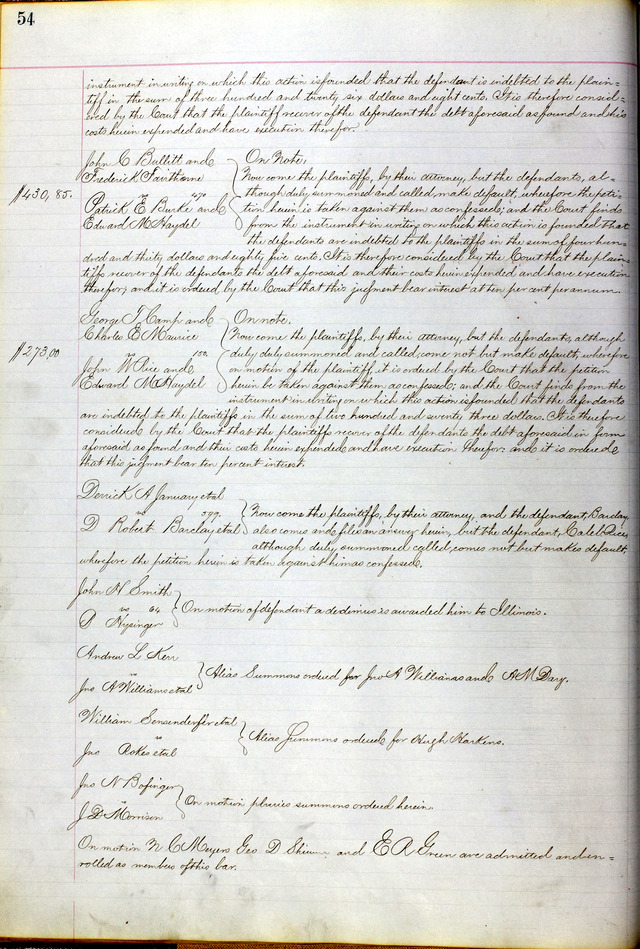 54
instrument in writing on which this action is founded that the defendant is indebted to the plain=
tiff in the sum of three hundred and twenty six dollars and eight cents. It is therefore consid-
ered by the Court that the plaintiff recover of the defendant the debt aforesaid as found and his
costs herein expended and have execution therefor.
John C Bullitt and
Frederick Fairthorne
vs 470
Patrick E Burke and
Edward M Haydel
$430,85.
On Note.
Now come the plaintiffs, by their attorney, but the defendants, al-
though duly summoned and called, make default, wherefore the peti-
tion herein is taken against them as confessed; and the Court finds
from the instrument in writing on which this action is founded that
the defendants are indebted to the plaintiffs in the sum of four hun-
dred and thirty dollars and eighty five cents. It is therefore considered by the Court that the plain-
tiffs recover of the defendants the debt aforesaid and their costs herein expended and have execution
therefor; and it is ordered by the Court that this judgment bear interest at ten per cent per annum.
George T Camp and
Charles E Maurice
vs
John W Rice and
Edward M Haydel
$273,00
On note.
Now come the plaintiffs, by their attorney, but the defendants, although
duly duly summoned and called, come not but make default, wherefore
on motion of the plaintiff, it is ordered by the Court that the petition
herein be taken against them as confessed; and the Court finds from the
instrument in writing on which this action is founded that the defendants
are indebted to the plaintiffs in the sum of two hundred and seventy three dollars. It is therefore
considered by the Court that the plaintiffs recover of the defendants the debt aforesaid in form
aforesaid as found and their costs herein expended and have execution therefor: and it is ordered
that this judgment bear ten percent interest.
Derrick A January et al
vs 599.
D Robert Barclay et al
Now come the plaintiffs, by their attorney, and the defendant, Barclay
also comes and files an answer herein, but the defendant, Caleb
although duly summoned called, comes not but makes default
wherefore the petition herein is taken against him as confessed.
John H Smith
vs 64
P Hysinger
On motion of defendant a dedimus is awarded him to Illinois.
Andrew L Kerr
vs
Jno A Williams et al
Alias Summons ordered for Jno A Williams and A M Day.
William Sensenderfer et al
vs
Jno Pokes et al
Alias Summons ordered for Hugh Harkens.
Jno N Bofinger
vs
J D Morrison
On motion pluries summons ordered herein.
On motion N C Meyers Geo D and E R Green are admitted and en=
rolled as members of this bar.